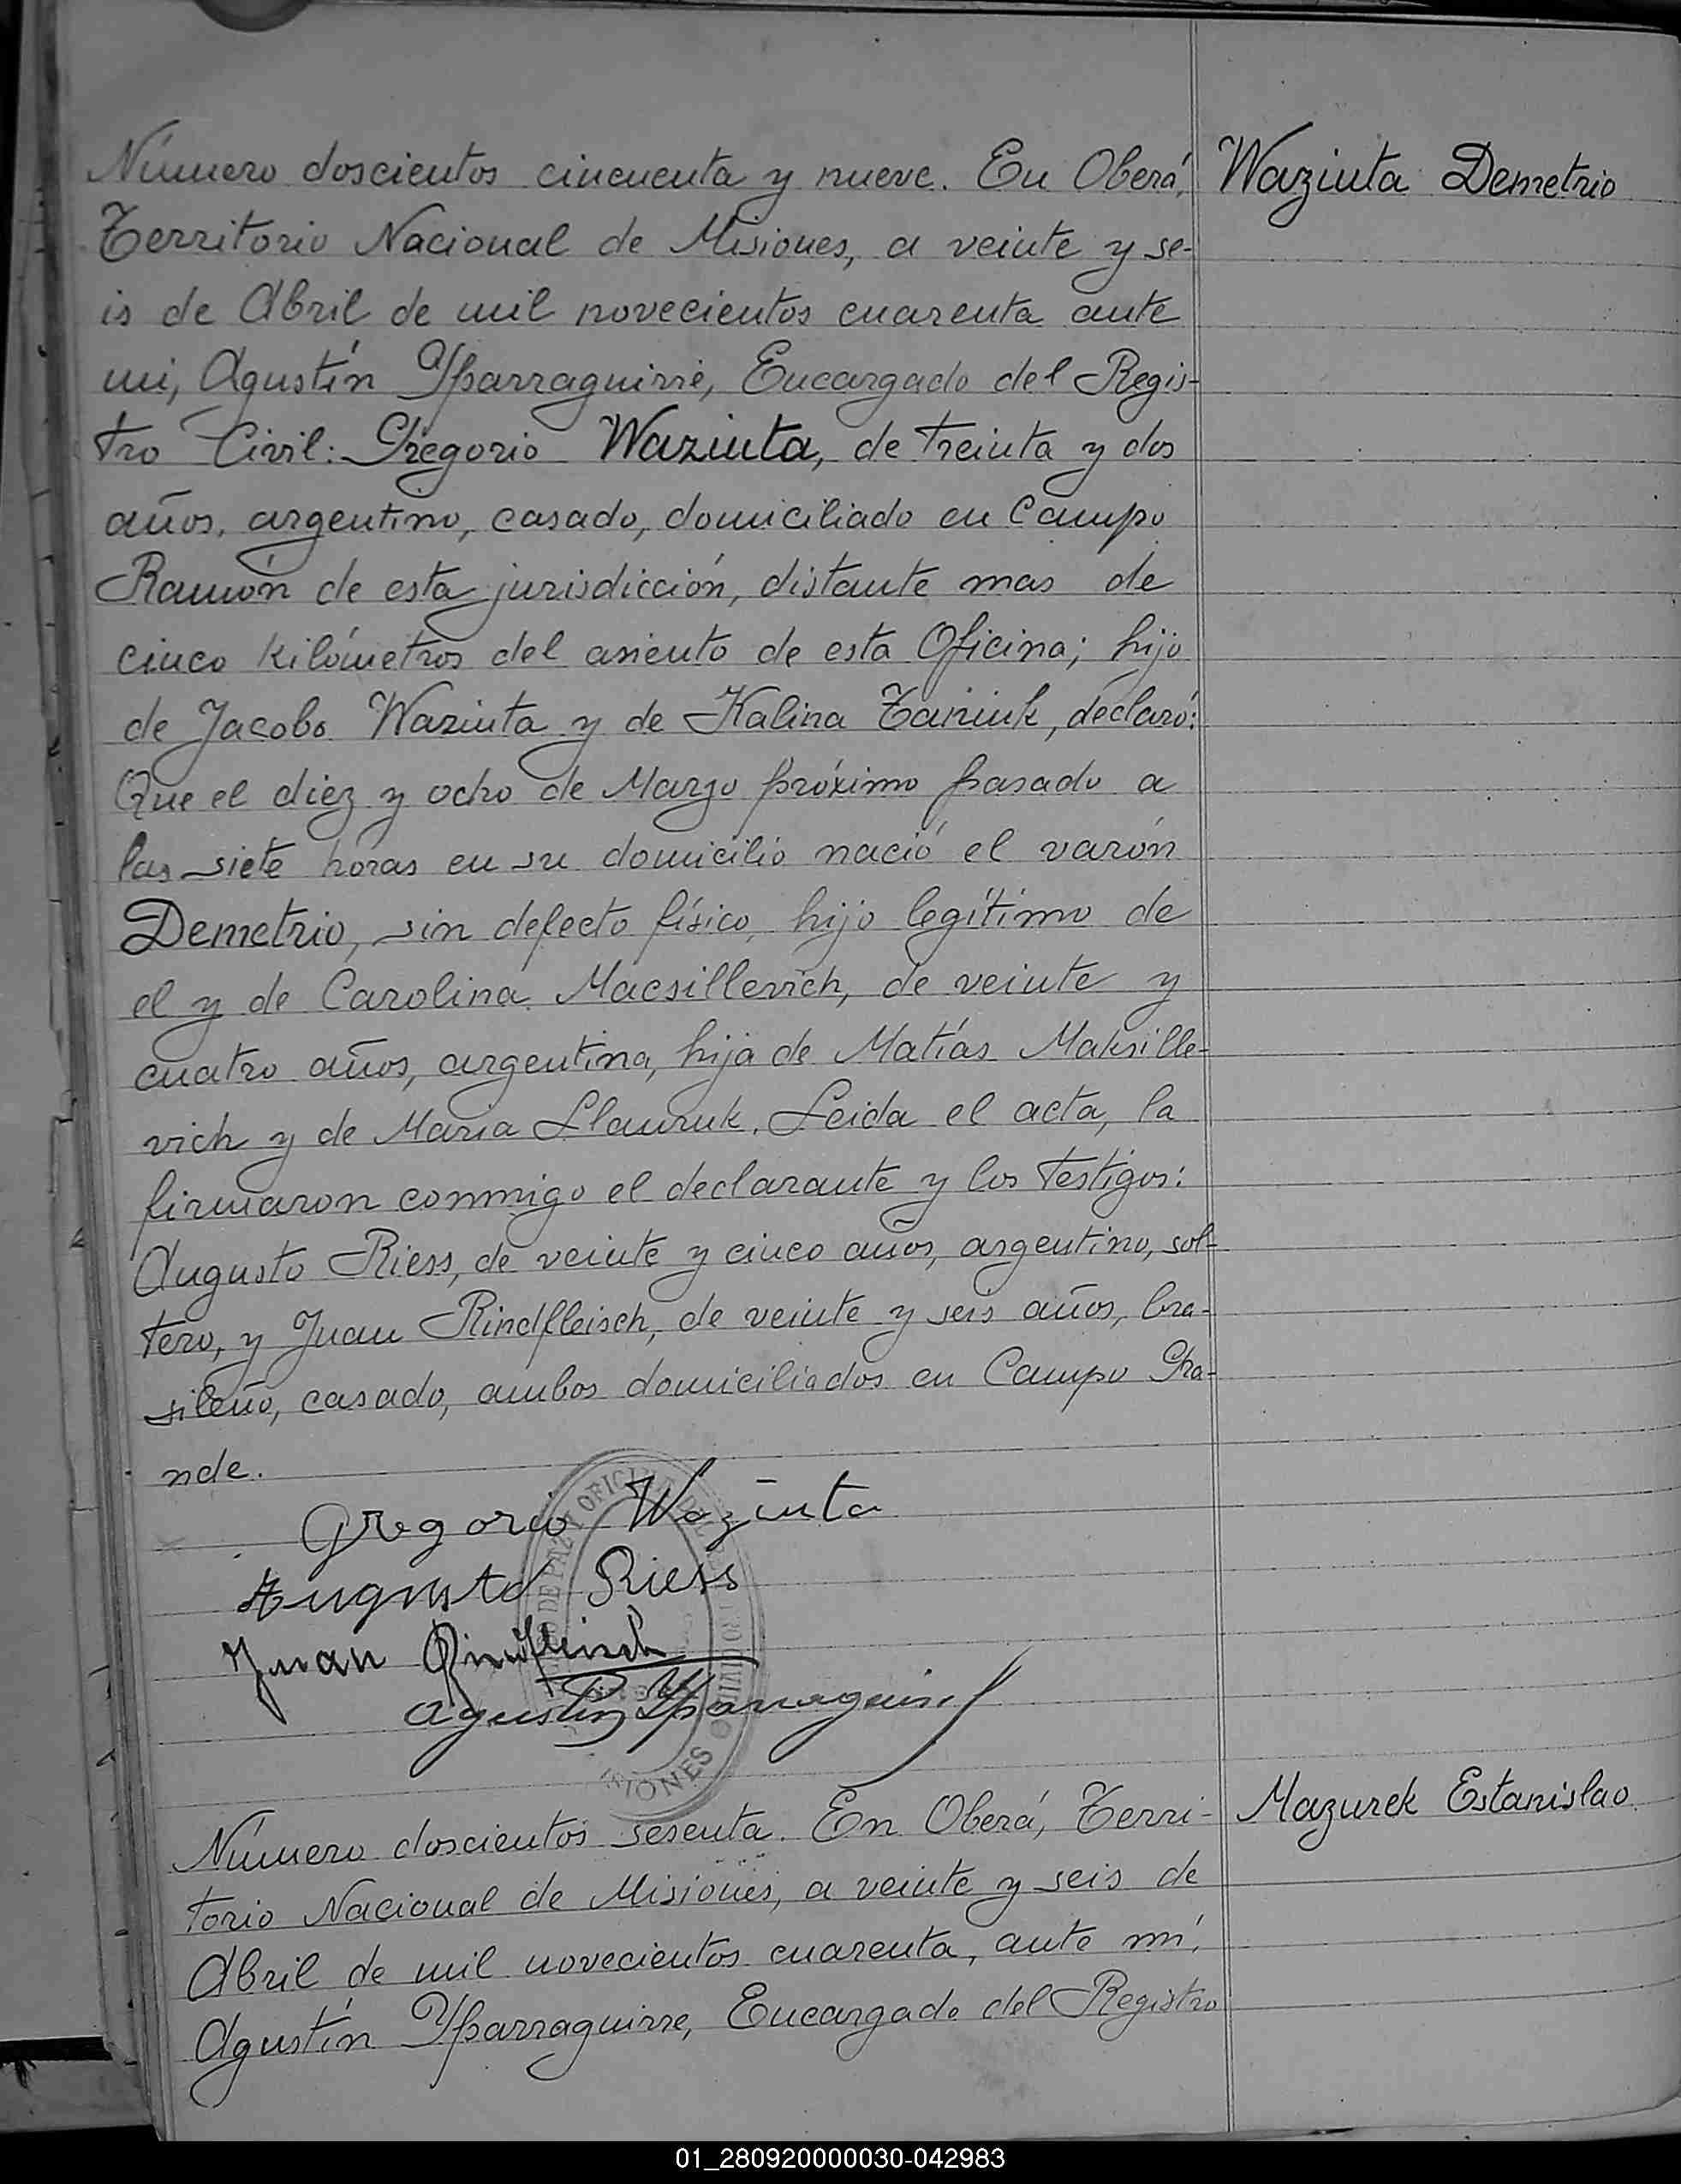 Número doscientos cincuenta y nueve. En Oberá,
Waziuta Demetrio
Territorio Nacional de Misiones, a veinte y se-
is de Abril de mil novecientos cuarenta ante
mi, Agustín Yparraguirre, Encargado del Regis-
tro Civil: Gregorio Waziuta, de treinta y dos
años, argentino, casado, domiciliado en Campo
Ramón de esta jurisdicción, distante mas de
cinco kilómetros del asiento de esta Oficina; hijo
de Jacobo Waziuta y de Kalina Taniuk, declaró:
Que el diez y ocho de Marzo próximo pasado a
las siete horas en su domicilio nació el varón
Demetrio, sin defecto físico, hijo legítimo de
el y de Carolina Macsillevich, de veinte y
cuatro años, argentina, hija de Matías Maksille-
vich y de María . Leida el acta, la
firmaron conmigo el declarante y los testigos:
Augusto Riess, de veinte y cinco años, argentino, sol-
tero, y Juan Rindfleisch, de veinte y seis años, bra-
sileño, casado, ambos domiciliados en Campo Gra-
nde.
Gregorio Waziuta
Augusto Riess
Juan Rindfleisch
Agustín Yparraguirre
MISIONES
Número doscientos sesenta. En Oberá, Terri-
Mazurek Estanislao
torio Nacional de Misiones, a veinte y seis de
Abril de mil novecientos cuarenta, ante mí,
Agustín Yparraguirre, Encargado del Registro
01_280920000030-042983